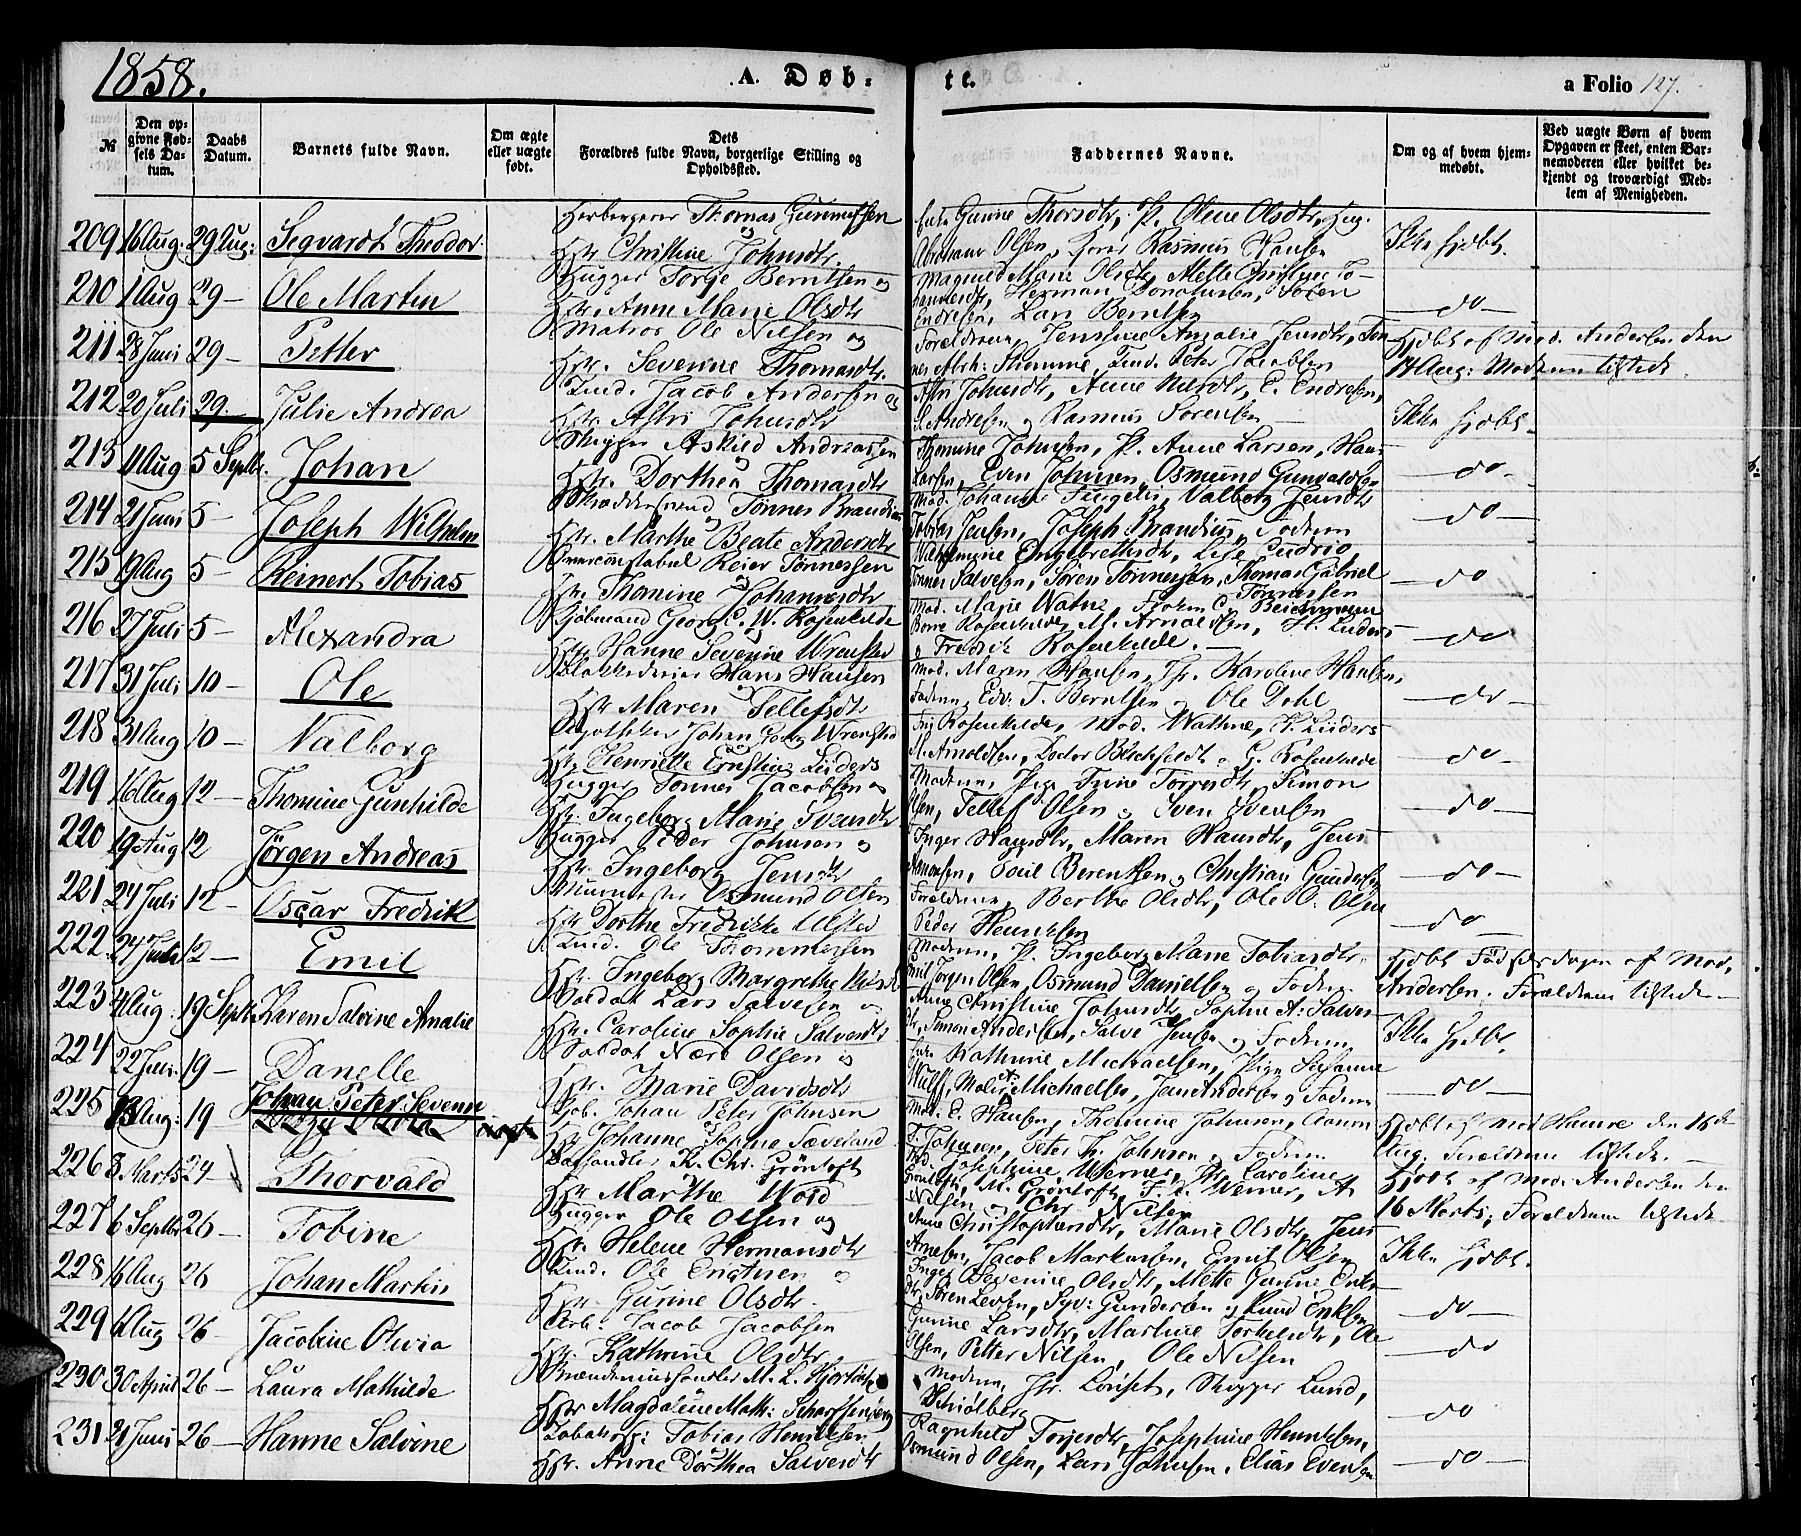 1858.
A. Døb-
te.
a Folio 127.
№
Den opgivne Fødsels Datum.
Daabs Datum.
Barnets fulde Navn.
Om ægte eller uægte født.
Dets Forældres fulde Navn, borgerlige Stilling og Opholdssted.
Faddernes Navne.
Om og af hvem hjemmedøbt.
Ved uægte Børn af hvem Opgaven er skeet, enten Barnemoderen eller hvilket bekjendt og troværdigt Medlem af Menigheden.
209 16 Aug: 29 Aug: Segvardt Theodor. Herbergerer Thomas Gunnufsen og Hstr. Christine Johnsdtr. Enke Gunne Thorsdtr, P. Olene Olsdtr, Abraham Olsen, Rasmus Hansen Ikke hjdbt.
210 1 Aug 29 — Ole Martin Hugger Torge Berntsen og Hstr. Anne Marie Olsdtr Herman Donatusen, Søren Endresen, Lars Berntsen — do —
211 28 Juni 29 — Petter Matros Ole Nilsen og Hstr. Severine Thomasdtr. Forældrene, Jensine Amalie Jensdtr, Peter Jacobsen Hjdbt af Mad. Andersen den Aug: Modren tilstede.
212 20 Juli 29. Julie Andrea Lind. Jacob Andersen og Hstr. Astri Johnsdtr Astri Johnsdtr, Anne Nilsdtr, E. Endresen, S. Andresen og Rasmus Sørensen Ikke hjdbt.
213 11 Aug 5 Septbr. Johan Skipper Askild Andreassen og Hstr. Dorthea Thomasdtr Thomine Johnsen, P. Anne Larsen, Hans Larsen, Even Johnsen, Osmund Gunvaldsen — do —
214 21 Juni 5 — Joseph Wilhelm Tønnes Brandius og Hstr. Marthe Beate Andersdtr Mad. Johanne Fingelin, Valborg Jensdtr Tobias Jensen, Joseph Brandius, Fadren — do —
215 19 Aug 5 — Reinert Tobias Overconstabel Reier Tønnessen og Hstr. Thomine Johannesdtr Wilhelmine Engebretsdtr, Tønnes Salvesen, Søren Tønnessen, Thomas Gabriel Tønnessen — do
216 27 Juli 5 — Alexandra Kjøbmand Georg C. W. Rosenkilde og Hstr Hanne Severine Wrensted Mad. Marie Watne, Frøken C. Beichmann Børre Rosenkilde, M. Arnoldsen, H. Lüders og Fredrik Rosenkilde. — do
217 31 Juli 10 — Ole Hans Hansen og Hstr Maren Tellefsdtr Mad. Maren Hansen, Jfr. Karoline Hansen, Fadren, Edv: T. Berntsen og Ole Dahl — do
218 31 Aug 10 — Valborg Apotheker Johan Wrensted og Hstr. Henriette Ernstine Lüders Rosenkilde, Mad. Wathne, H. Lüders M. Arnoldsen, Doctor Blichfeldt og G. Rosenkilde — do —
219 16 Aug 12 — Thomine Gunhilde Hugger Tønnes Jacobsen og Hstr. Ingeborg Marie Svendsdtr Modren, Pige Trine Torgersdtr, Simon Olsen, Tellef Olsen og Sven Svensen — do —
220 19 Aug 12 Jørgen Andreas Hugger Peder Johnsen og Hstr. Ingeborg Jensdtr Inger Hansdtr, Maren Hansdtr, Jens Berentsen og Christian Gundersen — do —
221 24 Juli 12 — Oscar Fredrik Osmund Olsen Hstr Dorthe Fredrikke Ulsted Forældrene, Berthe Olsdtr, Ole O. Olsen Peder Henriksen — do
222 24 Juli 12 — Emil Lind. Ole Thommessen Hstr. Ingeborg Margrethe Modren, P. Ingeborg Marie Tobiasdtr Jørgen Olsen, Osmund Danielsen og Fadren Hjdbt Fødselsdagen af Mad. Andersen. Forældrene tilstede —
223 4 Aug: 19 Septbr Karen Salvine Amalie Soldat Lars Salvesen og Hstr. Caroline Sophie Salvesdtr Anne Christine Johnsdtr, Sophie A: Salvesdtr, Simon Andersen, Salve Jensen og Fadren Ikke hjdbt.
224 22 Juli 19 — Danelle Soldat Nære Olsen og Hstr. Marie Davidsdtr Enke Kathrine Michaelsen, Pige Susanne Wulff, Michaelsen, Jans Andersen og Fadren — do —
225 13 Aug: 19 Johan Peter Severin Johan Peter Johnsen og Hstr Johanne Sophie Sæveland Mad. E. Hansen, Thomine Johnsen, Aanon T. Johnsen, Peter Th. Johnsen og Fadren Hjdbt af Mad Hamre den 16de Aug. Forældrene tilstede. —
226 3 Marts 24 — Thorvald K. Chr. Grøntoft Hstr Marthe Wold Mad. Josephine Werner, Jfr. Caroline Grøntoft, M. Grøntoft, F. L. Werner, A Nilsen og Chr. Nilsen Hjdbt af Mad. Andersen den 16 Marts; Forældrene tilstede
227 6 Septbr 26 — Tobine Hugger Ole Olsen og Hstr. Helene Hermansdtr Anne Christophersdtr, Marie Olsdtr, Jens Arnesen, Jacob Markussen, Emil Olsen Ikke hjdbt.
228 16 Aug 26 Johan Martin Lind. Ole Erichsen og Hstr. Gurine Olsdtr. Inger Severine Olsdtr, Mette Gurine Eriksdtr, Søren Larsen, Syv: Gundersen og Knud Eriksen — do —
229 1 Aug 26 — Jacobine Olivia Arb. Jacob Jacobsen Hstr. Kathrine Olsdtr. Gurine Larsdtr, Martine Torkildsdtr, Ole Olsen, Petter Nilsen, Ole Nilsen — do
230 30 April 26 — Laura Mathilde Brændeviinshandler M. L. Hstr Magdaline Math: Scharffenberg Modren, Jfr. Skipper Lund, Schiølberg — do
231 21 Juni 26 — Hanne Salvine Tobias Henriksen Hstr. Anne Dorthea Salvesdtr Ragnhild Torjersdtr, Josephine Henriksen, Osmund Olsen, Lars Johnsen, Elias Evensen — do